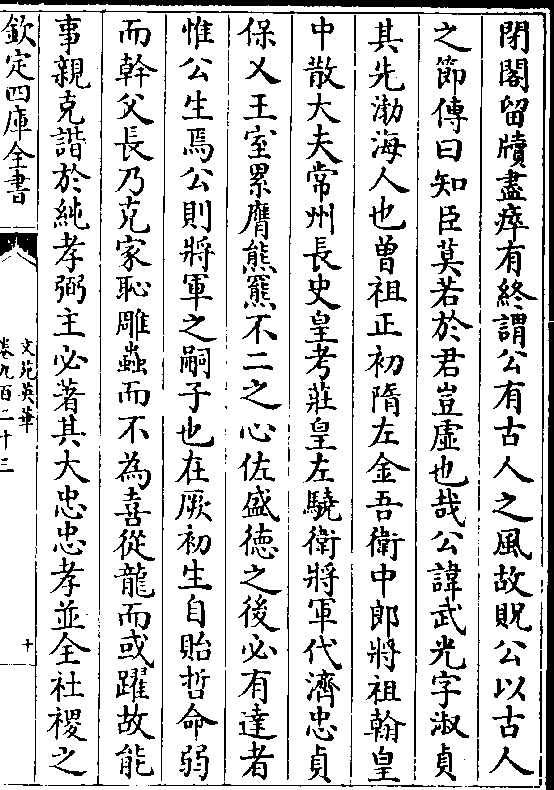 閉閣留牘盡瘁有終謂公有古人之風故貺公以古人
之節傳曰知臣莫若於君豈虚也哉公諱武光字淑貞
其先渤海人也曽祖正初隋左金吾衛中郎將祖翰皇
中散大夫常州長史皇考莊皇左驍衛將軍代濟忠貞
保乂王室累膺熊羆不二之心佐盛徳之後必有達者
惟公生焉公則將軍之嗣子也在厥初生自貽哲命弱
而幹父長乃克家恥雕蟲而不為喜從龍而或躍故能
事親克諧於純孝弼主必著其大忠忠孝並全社稷之
欽定四庫全書
文苑英華
卷九百二十三
十